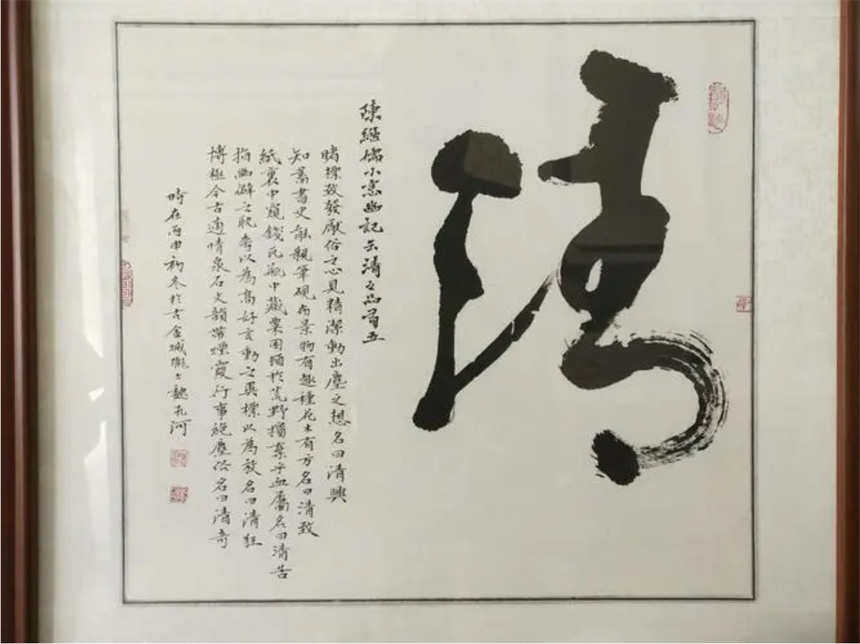 清
陳繼儒小窓幽記云清之品有五
睹標致發厭俗之心見精潔動出塵之想名曰清興
知蓄書史能親筆硯布景物有趣種花木有方名曰清致
紙裹中窺錢瓦瓶中藏粟困頓於荒野擯棄乎血屬名曰清苦
指幽僻之耽夸以為高好言動之異標以為放名曰清狂
博極今古適情泉石文韻帶煙霞行事絕塵俗名曰清奇
時在丙申初冬於古金城隴上魏孔河